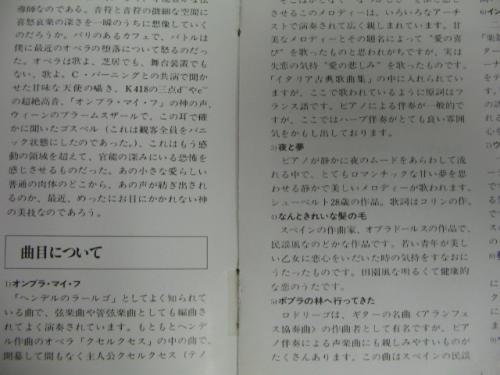 導師なのである。音符と音符の微細な空間に
喜怒哀楽の深さを一瞬のうちに想像していく
のだろうか。パリのあるカフェで、バトルは
僕に最近のオペラの堕落について怒るのだっ
た。オペラは歌よ、芝居でも、舞台装置でも
ない、歌よ。C・バーニングとの共演で聞か
せた甘味な天使の囁き、K418の三点d″やe″
の超絶高音、「オンブラ・マイ・フ」の神の声、
ウィーンのブラームスザールで、この耳で確
かに聞いたゴスペル（これは観客全員をパニ
ック状態にしたのであった。）、これはもう感
動の領域を超えて、官能の深みにいる恐怖を
感じさせるものだった。あの小さな愛らしい
普通の肉体のどこから、あの声が紡ぎ出され
るのか、最近、めったにお目にかかれない神
の美技なのであろう。
曲目について
1)オンブラ・マイ・フ
「ヘンデルのラールゴ」としてよく知られて
いる曲で、弦楽曲や管弦楽曲としても編曲さ
れてよく演奏されています。もともとヘンデ
ル作曲のオペラ「クセルクセス」の中の曲で、
開幕して間もなく主人公クセルクセス（テノ
させるこのメロディーは、いろいろなアーチ
ストで演奏されて広く親しまれています。甘
美なメロディーとその題名によって“愛の喜
び”を歌ったものと思われがちですが、実は
失恋の気持“愛の悲しみ”を歌ったものです。
「イタリア古典歌曲集」の中に入れられてい
ますが、ここで歌われているように原詞はフ
ランス語です。ピアノによる伴奏が一般的で
すが、ここではハープ伴奏がとても良い雰囲
気をかもし出しております。
3)夜と夢
ピアノが静かに夜のムードをあらわして流
れる中で、とてもロマンチックな甘い夢を思
わせる静かで美しいメロディーが歌われます。
シューベルト28歳の作品。歌詞はコリンの作。
4)なんときれいな髪の毛
スペインの作曲家、オブラドールスの作品で、
民謡風なのどかな作品です。若い青年が美し
い乙女に恋心をいだいた時の気持をすなおに
うたったものです。田園風な明るくて健康的
な恋のうたです。
5)ポプラの林へ行ってきた
ロドリーゴは、ギターの名曲《アランフェ
ス協奏曲》の作曲者として有名ですが、ピア
ノ伴奏による声楽曲にも親しみやすいものが
たくさんあります。この曲はスペインの民謡